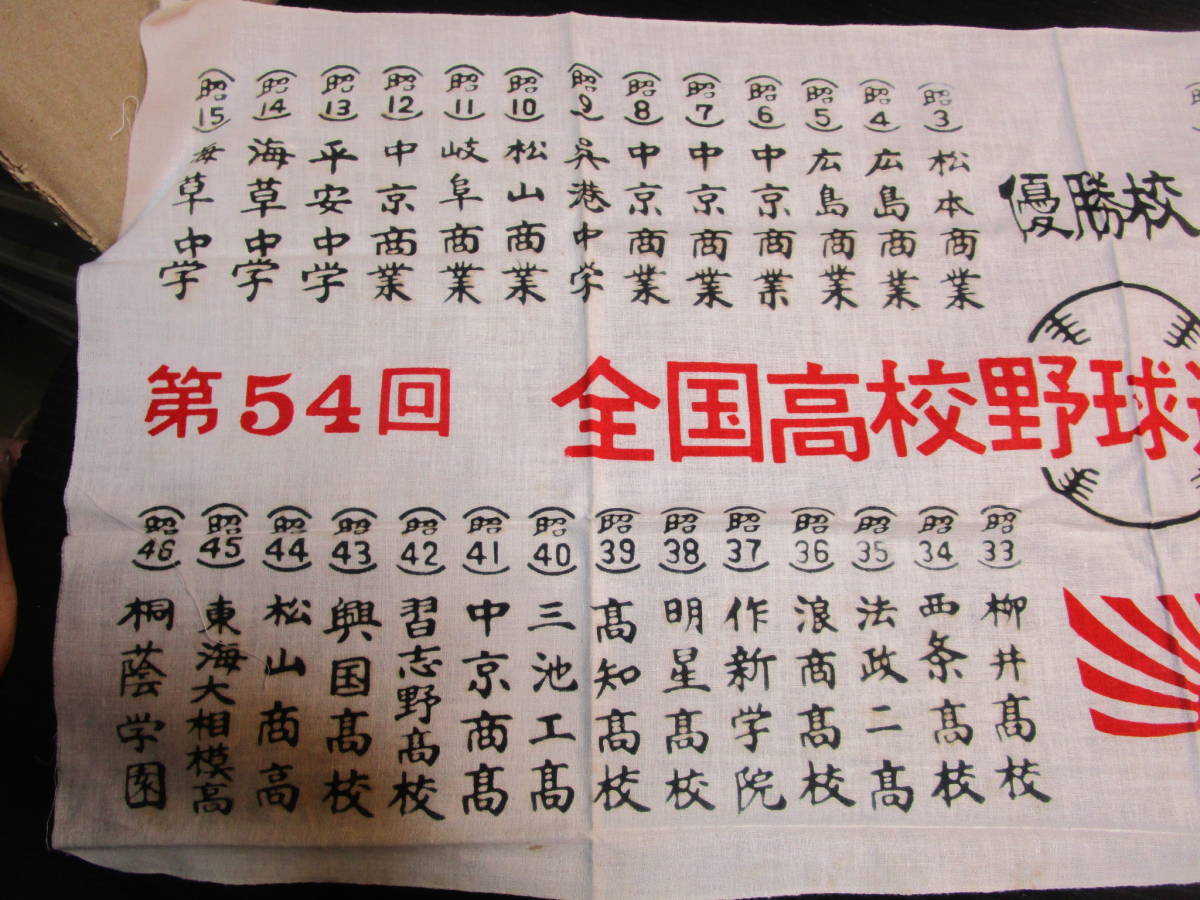 優勝校
(昭3)松本商業
(昭4)広島商業
(昭5)広島商業
(昭6)中京商業
(昭7)中京商業
(昭8)中京商業
(昭9)呉港中学
(昭10)松山商業
(昭11)岐阜商業
(昭12)中京商業
(昭13)平安中学
(昭14)海草中学
(昭15)海草中学
第54回 全国高校野球
(昭33)柳井高校
(昭34)西条高校
(昭35)法政二高
(昭36)浪商高校
(昭37)作新学院
(昭38)明星高校
(昭39)高知高校
(昭40)三池工高
(昭41)中京商高
(昭42)習志野高校
(昭43)興国高校
(昭44)松山商高
(昭45)東海大相模高
(昭46)桐蔭学園